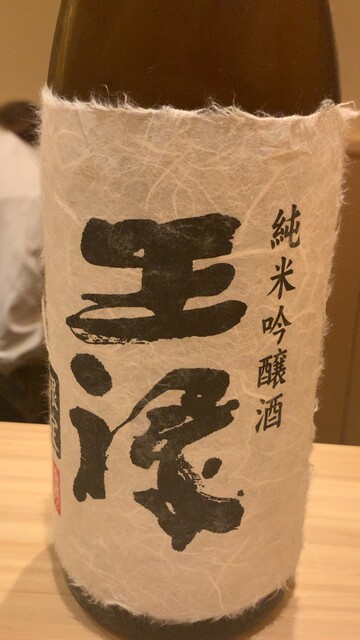 純米吟醸酒
王祿